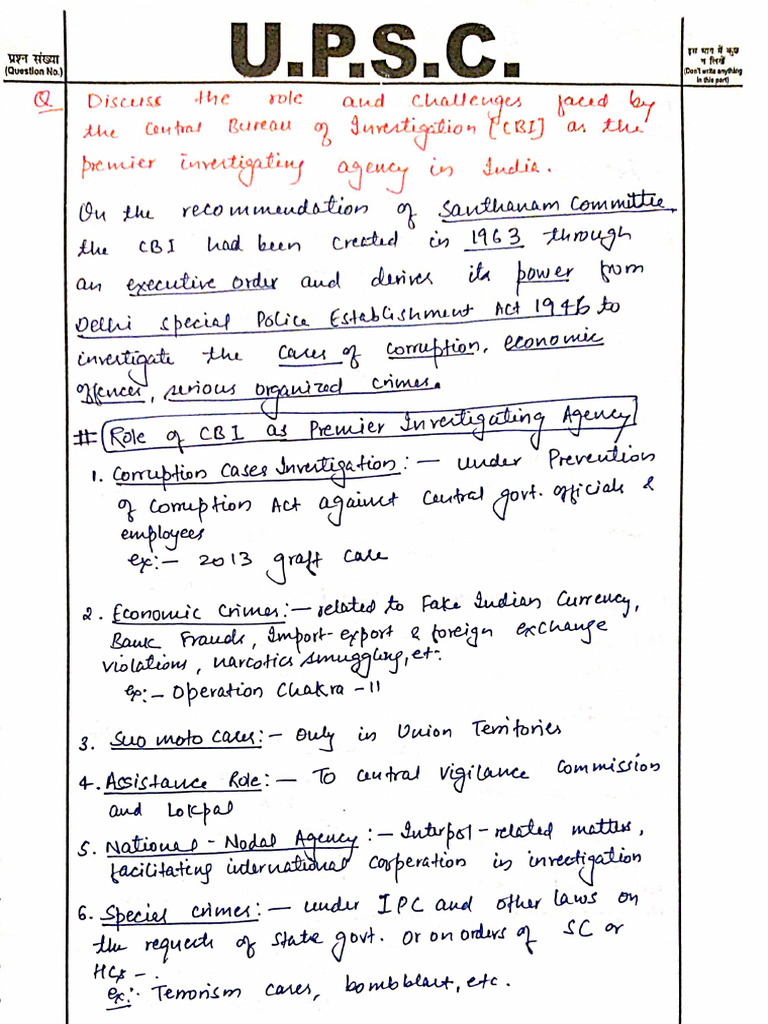 U.P.S.C.
प्रश्न संख्या
(Question No.)
इस भाग में कुछ
न लिखें
(Don't write anything
in this part)
Q Discuss the role and challenges faced by
the Central Bureau of Investigation [CBI] as the
premier investigating agency in India.
On the recommendation of Santhanam Committee,
the CBI had been created in 1963 through
an executive order and derives its power from
Delhi Special Police Establishment Act 1946 to
investigate the cases of corruption, economic
offences, serious organized crimes.
# Role of CBI as Premier Investigating Agency
1. Corruption Cases Investigation :- under Prevention
of Corruption Act against Central govt. officials &
employees
ex:- 2013 graft case
2. Economic Crimes :- related to Fake Indian Currency,
Bank Frauds, Import-export & foreign exchange
violations, narcotics smuggling, etc.
ex:- Operation Chakra -II
3. Suo moto cases :- Only in Union Territories
4. Assistance Role :- To Central Vigilance Commission
and Lokpal
5. National-Nodal Agency :- Interpol-related matters,
facilitating international corperation in investigation
6. Special crimes :- under IPC and other laws on
the requests of State govt. or on orders of SC or
HCs -.
ex:- Terrorism cases, bombblast, etc.